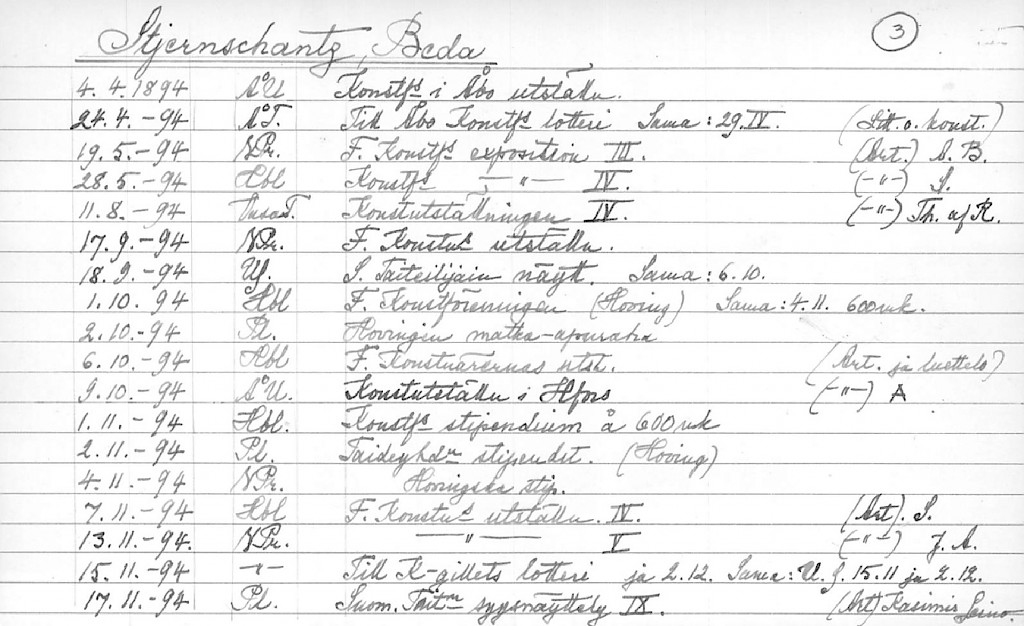 Stjernschantz, Beda 3
4. 4. 1894 ÅU Konstfs i Åbo utställn.
24. 4. -94 ÅT. Till Åbo Konstfs lotteri Sama: 29.IV. (Litt. o. konst.)
19. 5. -94 NPr. F. Konstfs exposition III. (Art.) A. B.
28. 5. -94 Hbl Konstfs —"— IV. (-"-) S.
11. 8. -94 VasaT. Konstutställningen IV. (-"-) Th. af R.
17. 9. -94 NPr. F. Konstns utställn.
18. 9. -94 Uf. S. Taiteilijain näytt. Sama: 6.10.
1. 10. 94 Hbl F. Konstföreningen (Hoving) Sama: 4.11. 600 mk.
2. 10. -94 Pl. Hovingin matka-apuraha
6. 10. -94 Hbl F. Konstnärernas utst. (Art. ja luettelo)
9. 10. -94 ÅU. Konstutställn i Hfors (-"-) A
1. 11. -94 Hbl. Konstfs stipendium à 600 mk
2. 11. -94 Pl. Taideyhdn stipendit. (Hoving)
4. 11. -94 NPr. Hovingska stip.
7. 11. -94 Hbl F. Konstns utställn. IV. (Art). S.
13. 11. -94. NPr. —"— V (-"-) J. A.
15. 11. -94 -"- Till K-gillets lotteri ja 2.12. Sama: U. S. 15.11 ja 2.12.
17. 11. -94 Pl. Suom. Taitn syysnäyttely IX. (Art) Kasimir Leino.